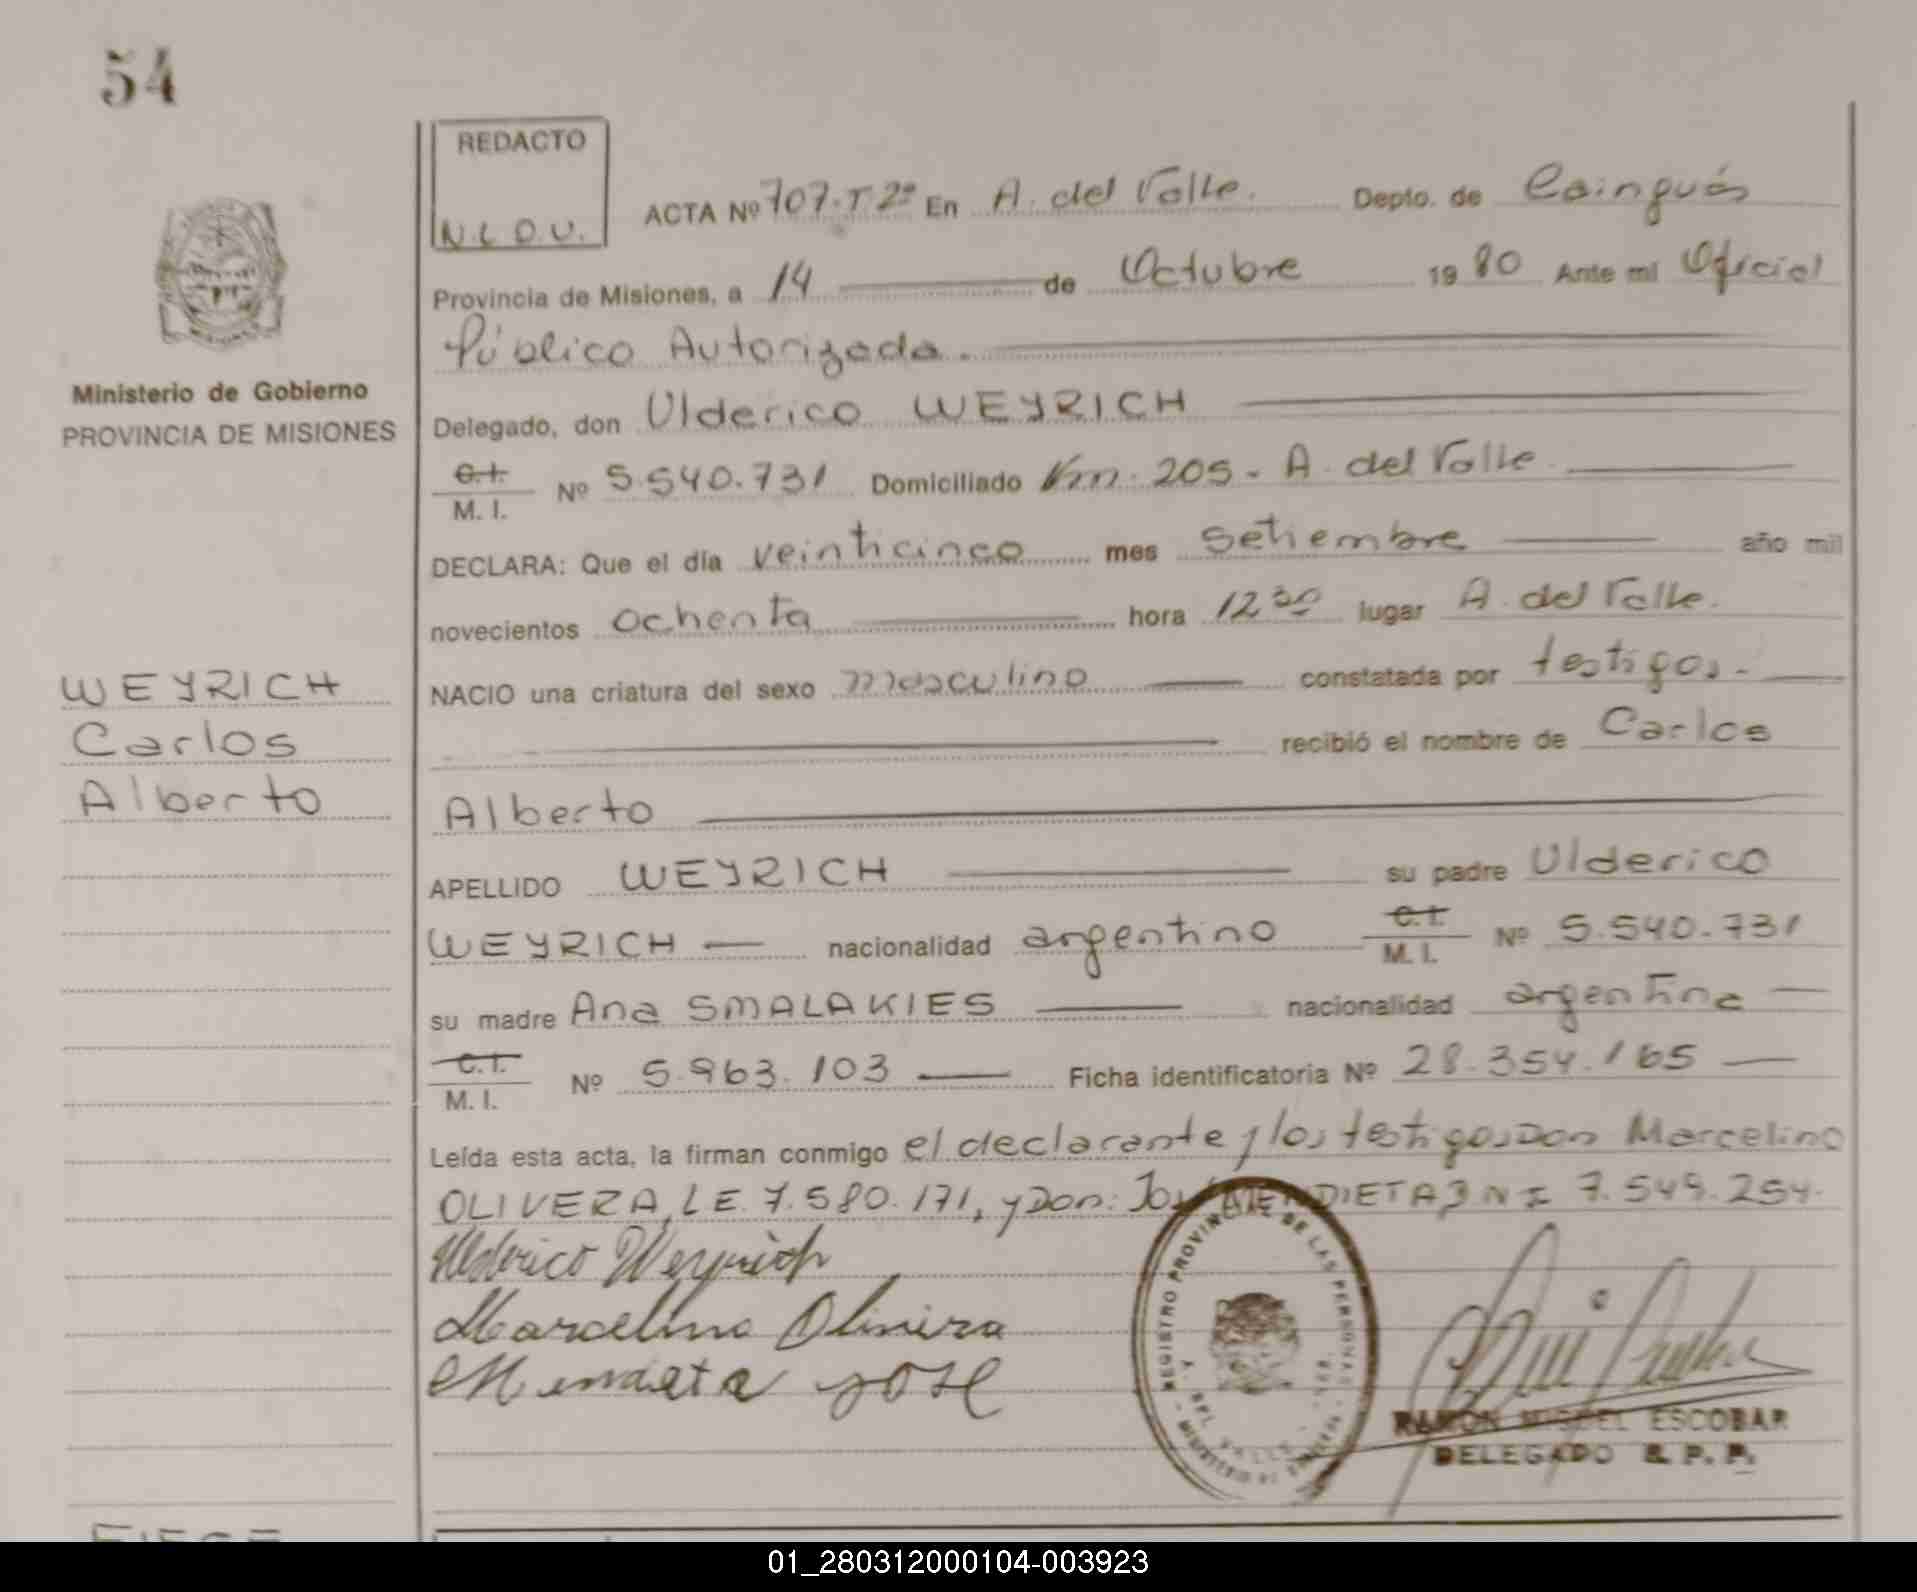 54
REDACTO
N.L.D.U.
ACTA Nº 707.T 2º En A. del Valle. Depto. de Cainguás
Provincia de Misiones, a 14 de Octubre 1980 Ante mi Oficial
Público Autorizado.
Ministerio de Gobierno
PROVINCIA DE MISIONES
Delegado, don Ulderico WEYRICH
C.I.
M. I. Nº 5.540.731 Domiciliado Km. 205 - A. del Valle.
DECLARA: Que el día veinticinco mes setiembre año mil
novecientos ochenta hora 12 30 lugar A. del Valle.
WEYRICH
Carlos
Alberto
NACIO una criatura del sexo masculino constatada por testigos.-
recibió el nombre de Carlos
Alberto
APELLIDO WEYRICH su padre Ulderico
WEYRICH nacionalidad argentino C.I.
M. I. Nº 5.540.731
su madre Ana SMALAKIES nacionalidad argentina
C.I.
M. I. Nº 5.963.103 Ficha identificatoria Nº 28.354.165
Leída esta acta, la firman conmigo el declarante y los testigos Don Marcelino
OLIVERA, LE. 7.580.171, y Don: José MENDIETA DNI 7.549.254.
Ulderico Weyrich
Marcelino Olivera
Mendieta José
REGISTRO PROVINCIAL DE LAS PERSONAS
A. DEL VALLE
MINISTERIO DE GOBIERNO
RAMON MIGUEL ESCOBAR
DELEGADO R. P. P.
01_280312000104-003923